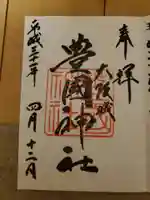 奉拝
大阪城
豊國神社
平成三十一年四月十二日